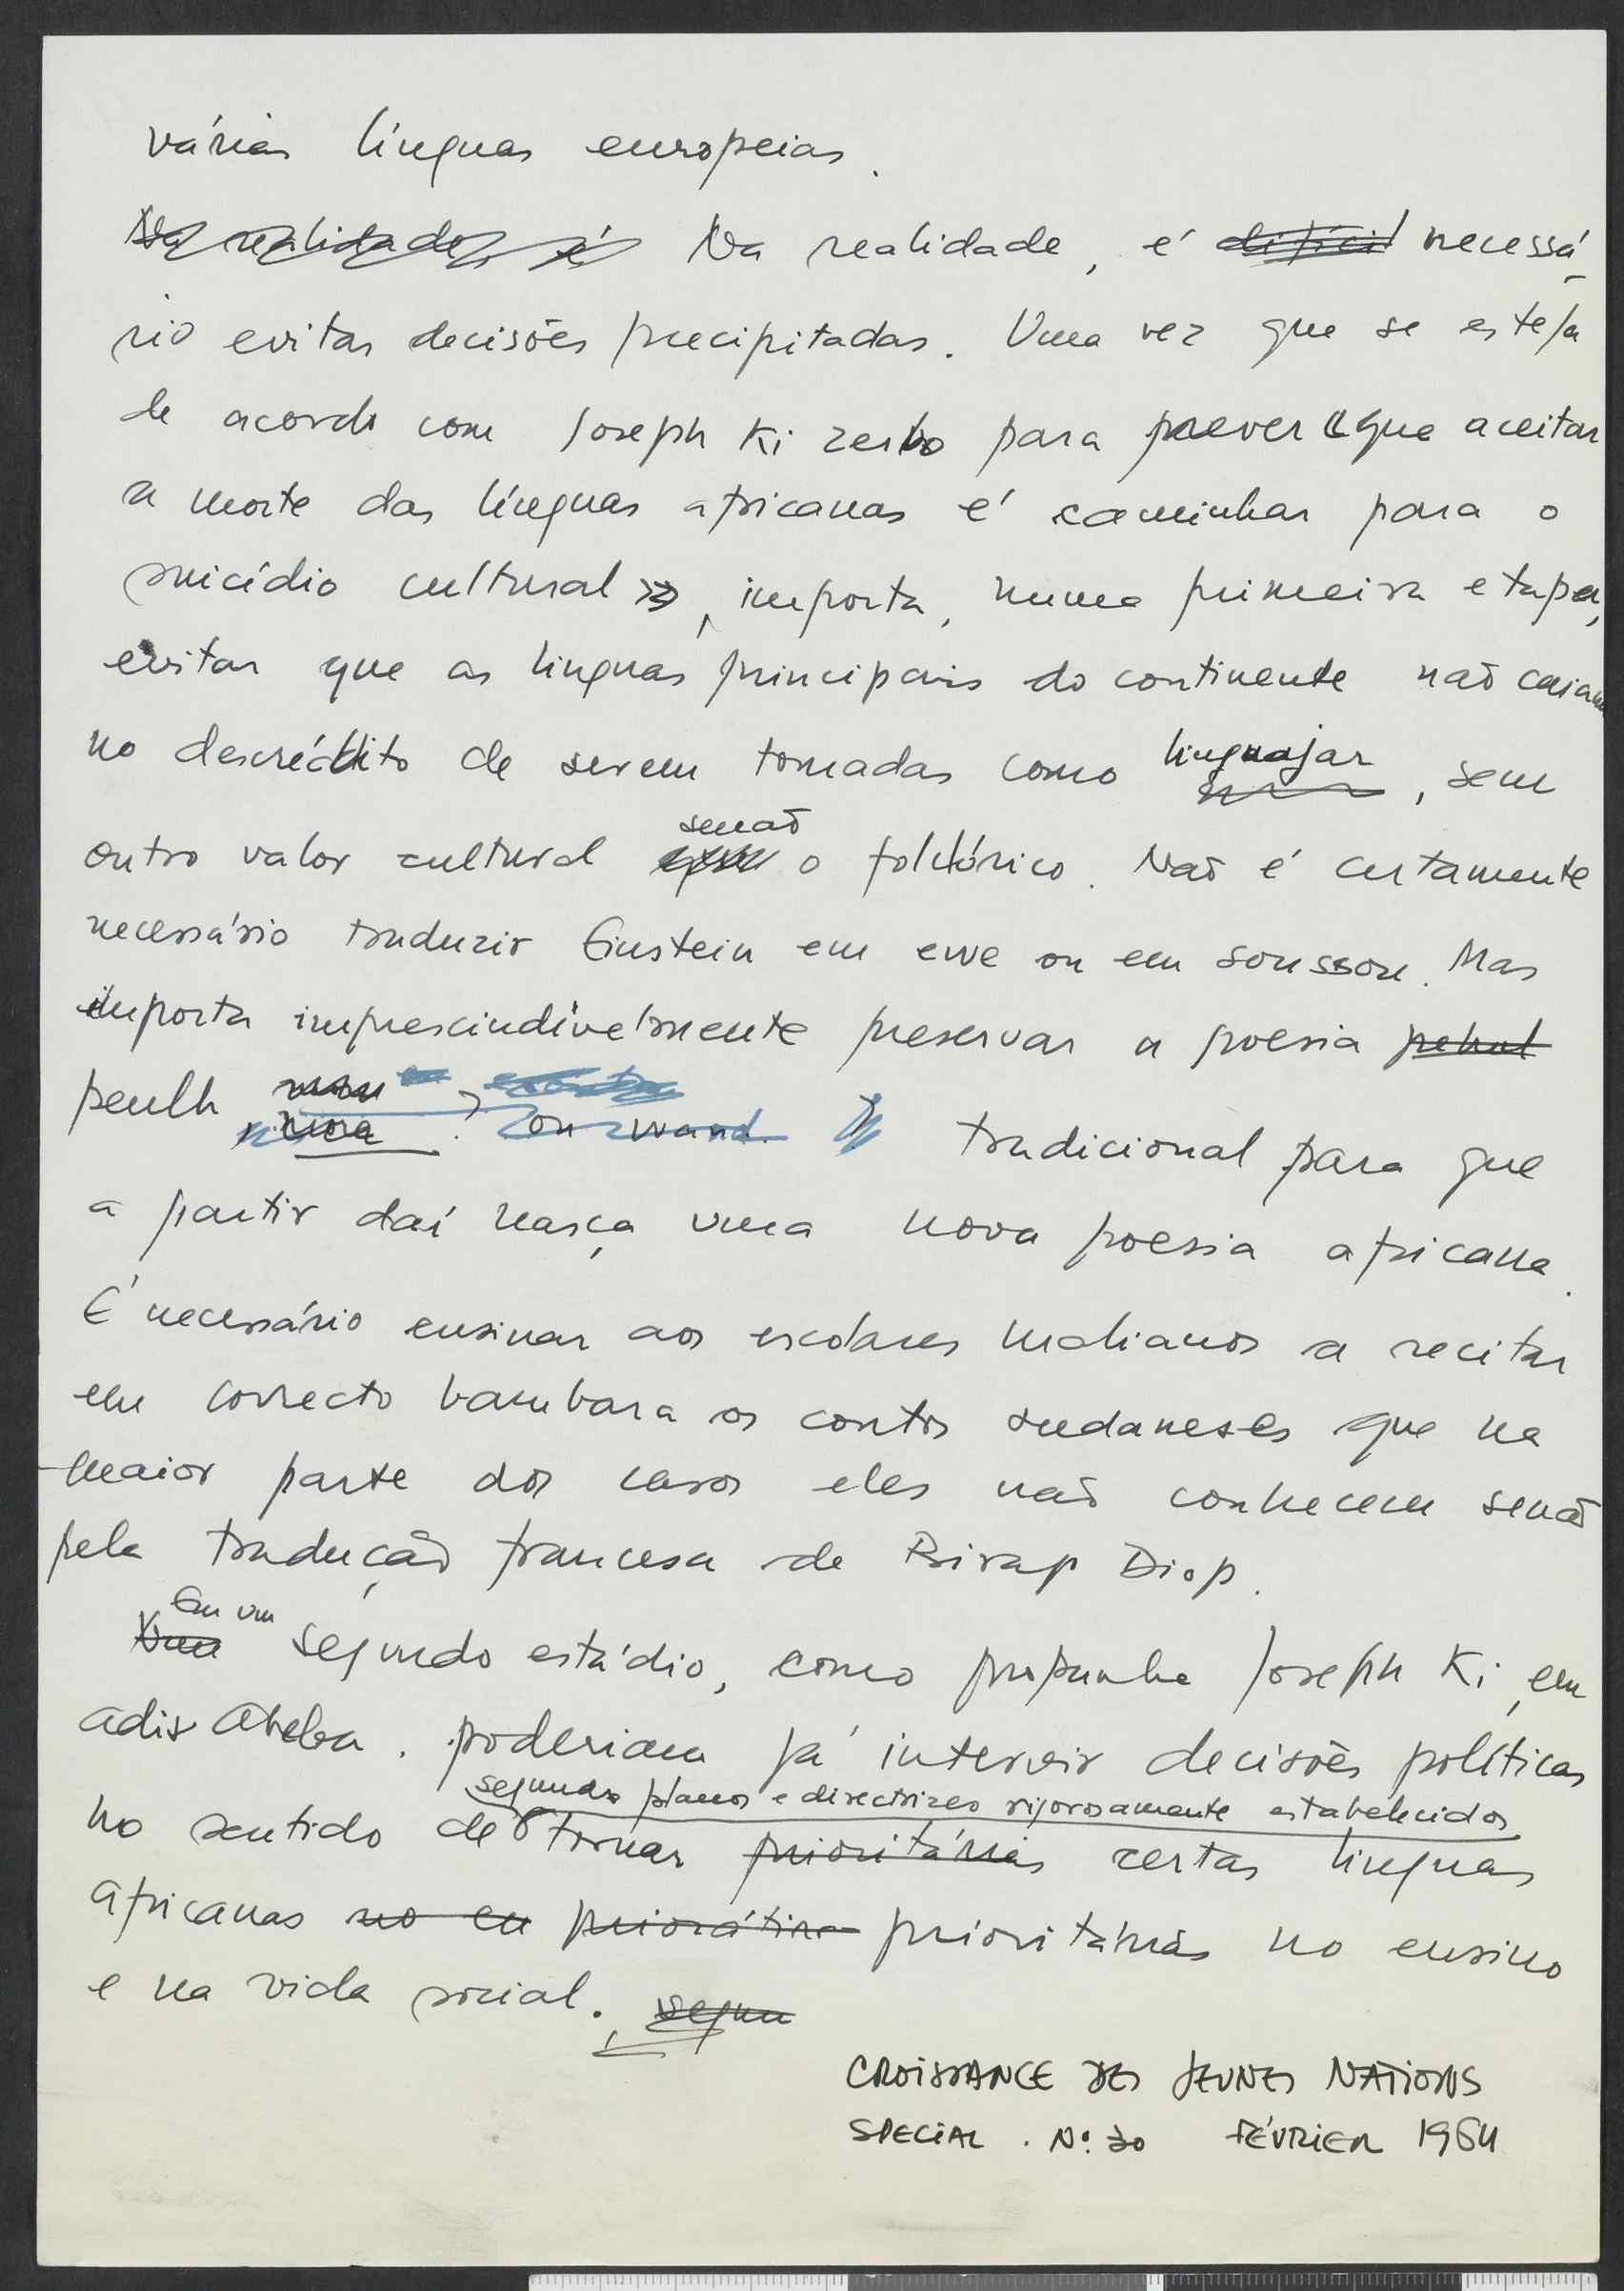 várias línguas europeias.
Na realidade, é Na realidade, é difícil necessá-
rio evitar decisões precipitadas. Uma vez que se esteja
de acordo com Joseph Ki zerbo para prever «que aceitar
a morte das línguas africanas é caminhar para o
suicídio cultural», importa, numa primeira etapa,
evitar que as linguas principais do continente não caiam
no descrédito de serem tomadas como linguajar, sem
outro valor cultural senão o folclórico. Não é certamente
necessário traduzir Einstein em ewe ou em soussou. Mas
importa imprescindívelmente preservar a poesia pehul
peulh ou wand. tradicional para que
a partir daí nasça uma nova poesia africana.
É necessário ensinar aos escolares malianos a recitar
em correcto bambara os contos sudaneses que na
maior parte dos casos eles não conhecem senão
pela tradução francesa de Birap Diop.
Em um
segundo estádio, como propunha Joseph Ki, em
adis Abeba. poderiam já intervir decisões políticas
segundo planos e directrizes rigorosamente estabelecidos
no sentido de tornar prioritárias certas línguas
africanas no en priorátira prioritárias no ensino
e na vida social. segun
CROISSANCE DES JEUNES NATIONS
SPECIAL . Nº 30 FÉVRIER 1964